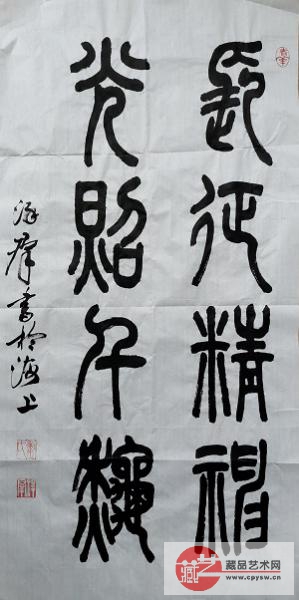 長征精神
光照千龝
群書於海上
藏品艺术网
www.cpysw.cn